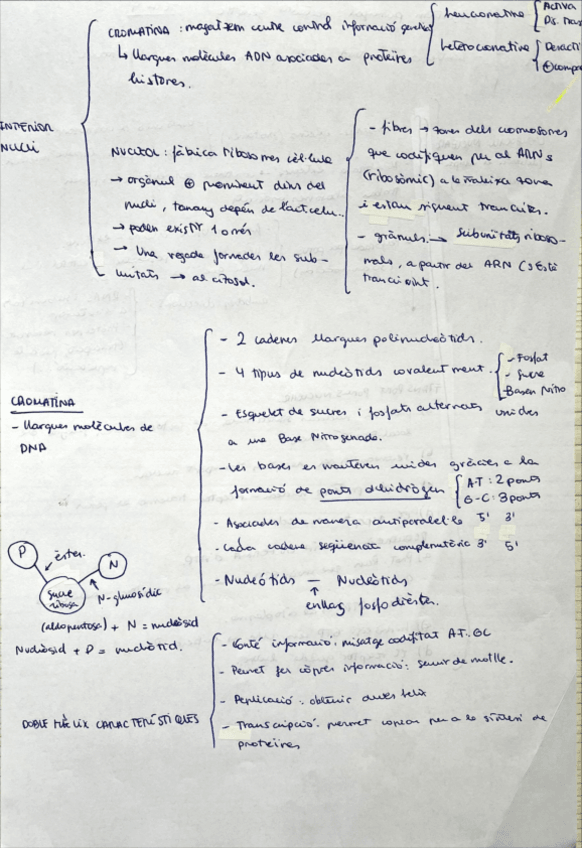 INTERIOR
NUCLI
CROMATINA : magatzem centre control informació genètica
↳ Llargues molècules ADN associades a proteïnes
histones.
Eucromatina
Activa
Heterocromatina
NUCLÈOL : fàbrica ribosomes cèl·lula
→ orgànul ⊕ prominent dins del
nucli, tamany depèn de l'act celu..
→ poden existir 1 o més
→ Una vegada formades les sub-
unitats → al citosol.
- fibres → zones dels cromosomes
que codifiquen per al ARN
(ribosòmic) a la mateixa zona
i estan siguent transcrites.
- grànuls → subunitats riboso-
mals, a partir del ARN
transcrivint.
CROMATINA
- Llargues molècules de
DNA
- 2 cadenes llargues polinucleòtids.
- 4 tipus de nucleòtids covalentment
- Fosfat
- Sucre
- Bases Nitro
- Esquelet de sucres i fosfats alternats unides
a una Base Nitrogenada.
- Les bases es mantenen unides gràcies a la
formació de ponts d'hidrògen
A-T : 2 ponts
G-C : 3 ponts
- Associades de manera antiparalel·la 5' 3'
- Cada cadena seqüència complementària 3' 5'
- Nucleòtids — Nucleòtids
↑
enllaç fosfodièster.
P
èster.
N
sucre
ribosa
N-glucosídic
(aldopentosa) + N = nucleòsid
Nucleòsid + P = nucleòtid.
DOBLE HÈLIX CARACTERÍSTIQUES
- Conté informació: missatge codificat A-T. GC
- Permet fer còpies informació: servir de motlle.
- Replicació : obtenir dues hèlix
- Transcripció: permet copiar per a la síntesi de
proteïnes